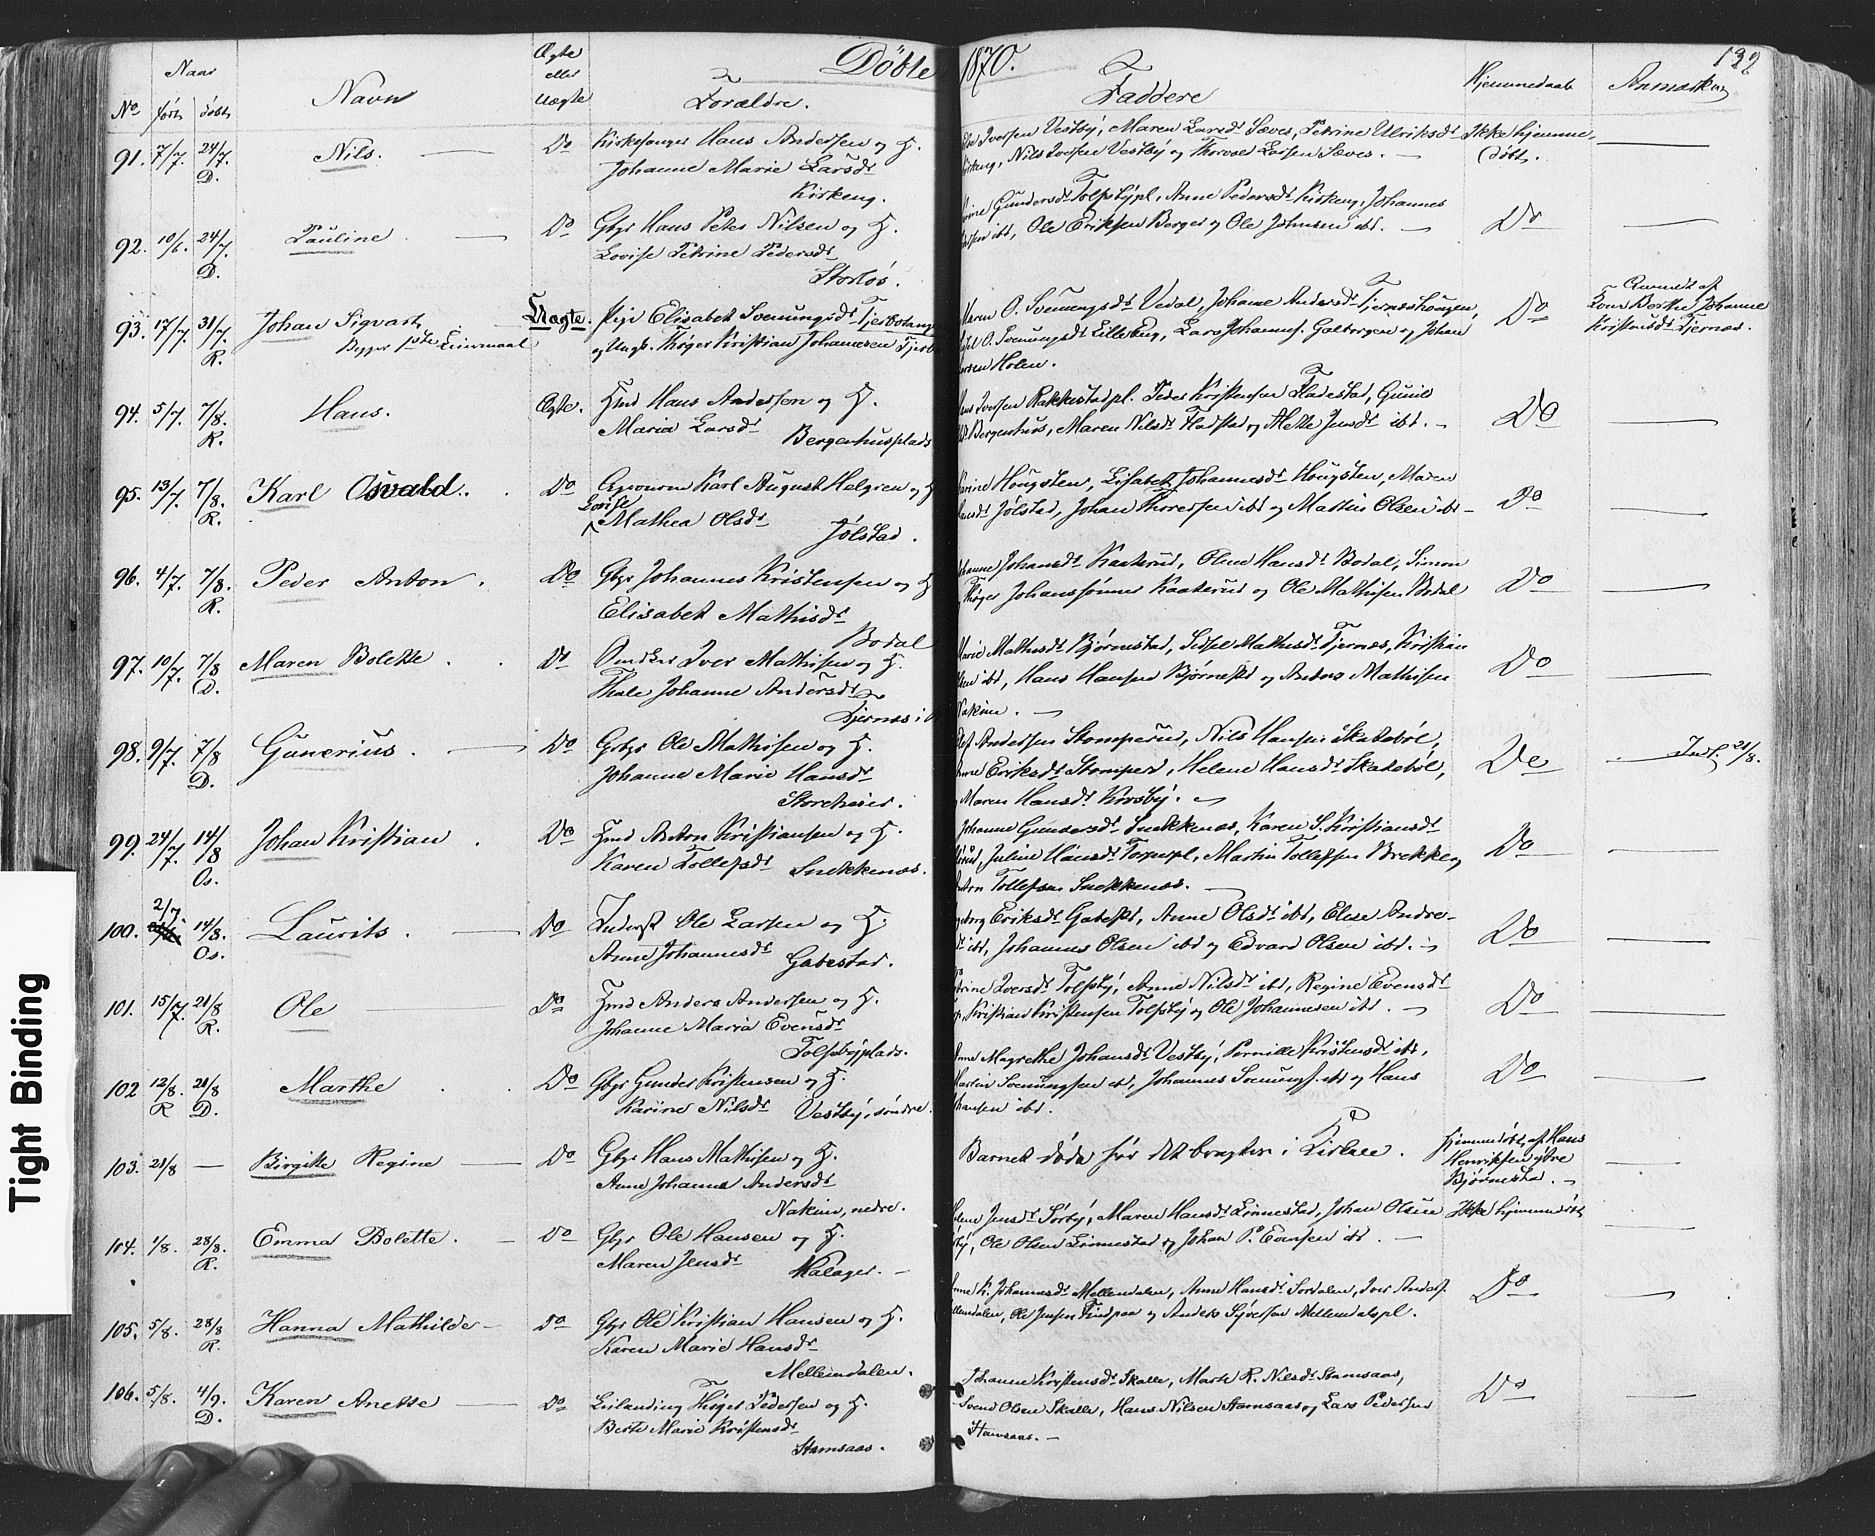 Døbte 1870. 132
Naar
Ægte
eller
Uægte
No født døbt Navn Forældre. Faddere Hjemmedaab Anmærkning
91. 7/7. 24/7. D. Nils. Do Kirkesanger Hans Andersen og H.
Johanne Marie Larsdr
Kirkeng.
Iversen Vestby, Maren Larsdr Sæves, Petrine Ulriksdr Ikke hjemme-
Kirkeng, Nils Iversen Vestby og Thorvel Larsen Sæves. døbt.
92. 10/6. 24/7. D. Pauline. Do Gbgr Hans Peter Nilsen og H.
Lovise Petrine Pedersdr
Storløs.
Gundersdr Tolfsbypl, Anne Pedersdr Kirkeng, Johannes
ibd, Ole Eriksen Berger og Ole Johnsen ibd. Do
93. 17/7. 31/7. R. Johan Sigvart Uægte. Pige Elisabet Svenungsdr
Begges 1ste Leiermaal
og Ungk. Thøger Kristian Johannesen
Maren O. Svenungsdr Vedal, Johanne Andersdr Tjernæshougen, Do
O. Svenungsdr Lilleeng, Lars Johannes. Galbergen og Johan
Holen.
Anmeldt af
Berthe Johanne
Kristensdr Tjernæs.
94. 5/7. 7/8. R. Hans. Ægte. Hmd Hans Andersen og H.
Maria Larsdr Bergenhusplads
Iversen Rakkestadpl. Peder Kristensen Fladestad, Gunild Do
Bergenhus, Maren Nilsdr Fladstad og Mette Jensdr ibd.
95. 13/7. 7/8. R. Karl Osvald. Do Karl August Helgren og H
Lovise
Mathea Olsdr Jølstad.
Karine Hougsten, Lisabet Johannesdr Hougsten, Maren Do
Jølstad, Johan Thoresen ibd og Mathis Olsen ibd
96. 4/7. 7/8. R. Peder Anton. Do Gbgr Johannes Kristensen og H
Elisabet Mathisdr
Bodal
Johanne Johansdr Kaaterud, Oline Hansdr Bodal, Simon Do
Thøger Johanssønner Kaaterud og Ole Mathisen Bodal
97. 10/7. 7/8 D. Maren Bolette. Do Iver Mathisen og H.
Thale Johanne Andersdr
Tjernæs
Marie Mathisdr Bjørnestad, Sidsel Mathisdr Tjernæs, Kristian Do
ibd, Hans Hansen Bjørnestd og Anders Mathisen
Nakim.
98. 9/7. 7/8 D. Gunerius. Do Gbgr Ole Mathisen og H.
Johanne Marie Hansdr
Andersen Stomperud, Nils Hansen Skatebøl, Do Inf. 21/8.
Eriksdr Stomperd, Helene Hansdr Skatebøl,
Maren Hansdr Korsby.
99. 24/7. 14/8 Os. Johan Kristian. Do Hmd Anton Kristiansen og H.
Karen Tollefsdr Snekkenæs.
Johanne Gundersdr Snekkenæs, Karen S. Kristiansdr Do
Juline Hansdr Torpepl, Martin Tollefsen Brekke og
Anton Tollefsen Snekkenæs.
100. 2/7. 14/8. Os. Laurits. Do Inderst Ole Larsen og H.
Anne Johannesdr Gabestad.
Eriksdr Gabestd, Anne Olsdr ibd, Elise Andre- Do
ibd, Johannes Olsen ibd og Edvard Olsen ibd.
101. 15/7. 21/8 R. Ole Do Hmd Anders Andersen og H.
Johanne Maria Evensdr
Tolfsbyplads.
Iversdr Tolfsby, Anne Nilsdr ibd, Regine Evensdr Do
Kristian Kristensen Tolfsby og Ole Johannesen ibd.
102 12/8. R 21/8 D. Marthe Do Gbgr Gunder Kristensen og H.
Karine Nilsdr Vestby, søndre.
Anne Magrethe Johansdr Vestby, Pernille Kristensdr ibd, Do
Martin Svenungsen ibd, Johannes Svenungs. ibd og Hans
Johansen ibd.
103. 21/8 — Birgitte Regine Do Gbgr Hans Mathisen og H.
Anne Johanne Andersdr
Nakim, nedre.
Barnet døde før det bragtes i Kirke. Hjemmedøbt af Hans
Henriksen ytre
Bjørnestad.
104. 1/8. 28/8. R. Emma Bolette. Do Gbgr Ole Hansen og H.
Maren Jensdr
Helene Jensdr Sørby, Maren Hansdr Linnestad, Johan Olsen Ikke hjemmedøbt
Ole Olsen Linnestad og Johan P. Evensen ibd.
105. 5/8. 28/8 R. Hanna Mathilde Do Gbgr Ole Kristian Hansen og H.
Karen Marie Hansdr
Mellemdalen.
K. Johannesdr Mellemdalen, Anne Hansdr Sordalen, Iver Anders. Do
Mellemdalen, Ole Jensen og Anders Syversen Mellemdalspl.
106. 5/8. 4/9. D. Karen Anette Do Leilending Thøger Pedersen og H.
Berte Marie Kristensdr
Stamsaas.
Johanne Kristensdr Skalle, Marte R. Nilsdr Stamsaas, Do
Svend Olsen Skalle, Hans Nilsen Stamsaas og Lars Pedersen
Stamsaas.
Tight Binding